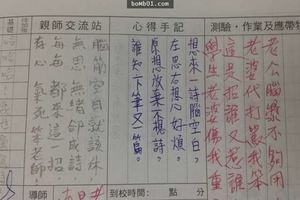 bomb01.com
親師交流站
心得手記
測驗・作業及應帶物
基礎
想來一詩腦空白，
左思右想心好煩。
原想放棄不想詩，
誰知下筆又一篇。
腦筋空白就該休
無思無緒卻成詩
每每都來這一招
有心氣死笨老師
老公腦殘不夠用
老婆代打罵我笨
這是招誰又惹誰
學生老婆傷我重
導師
到校時間：
點
分